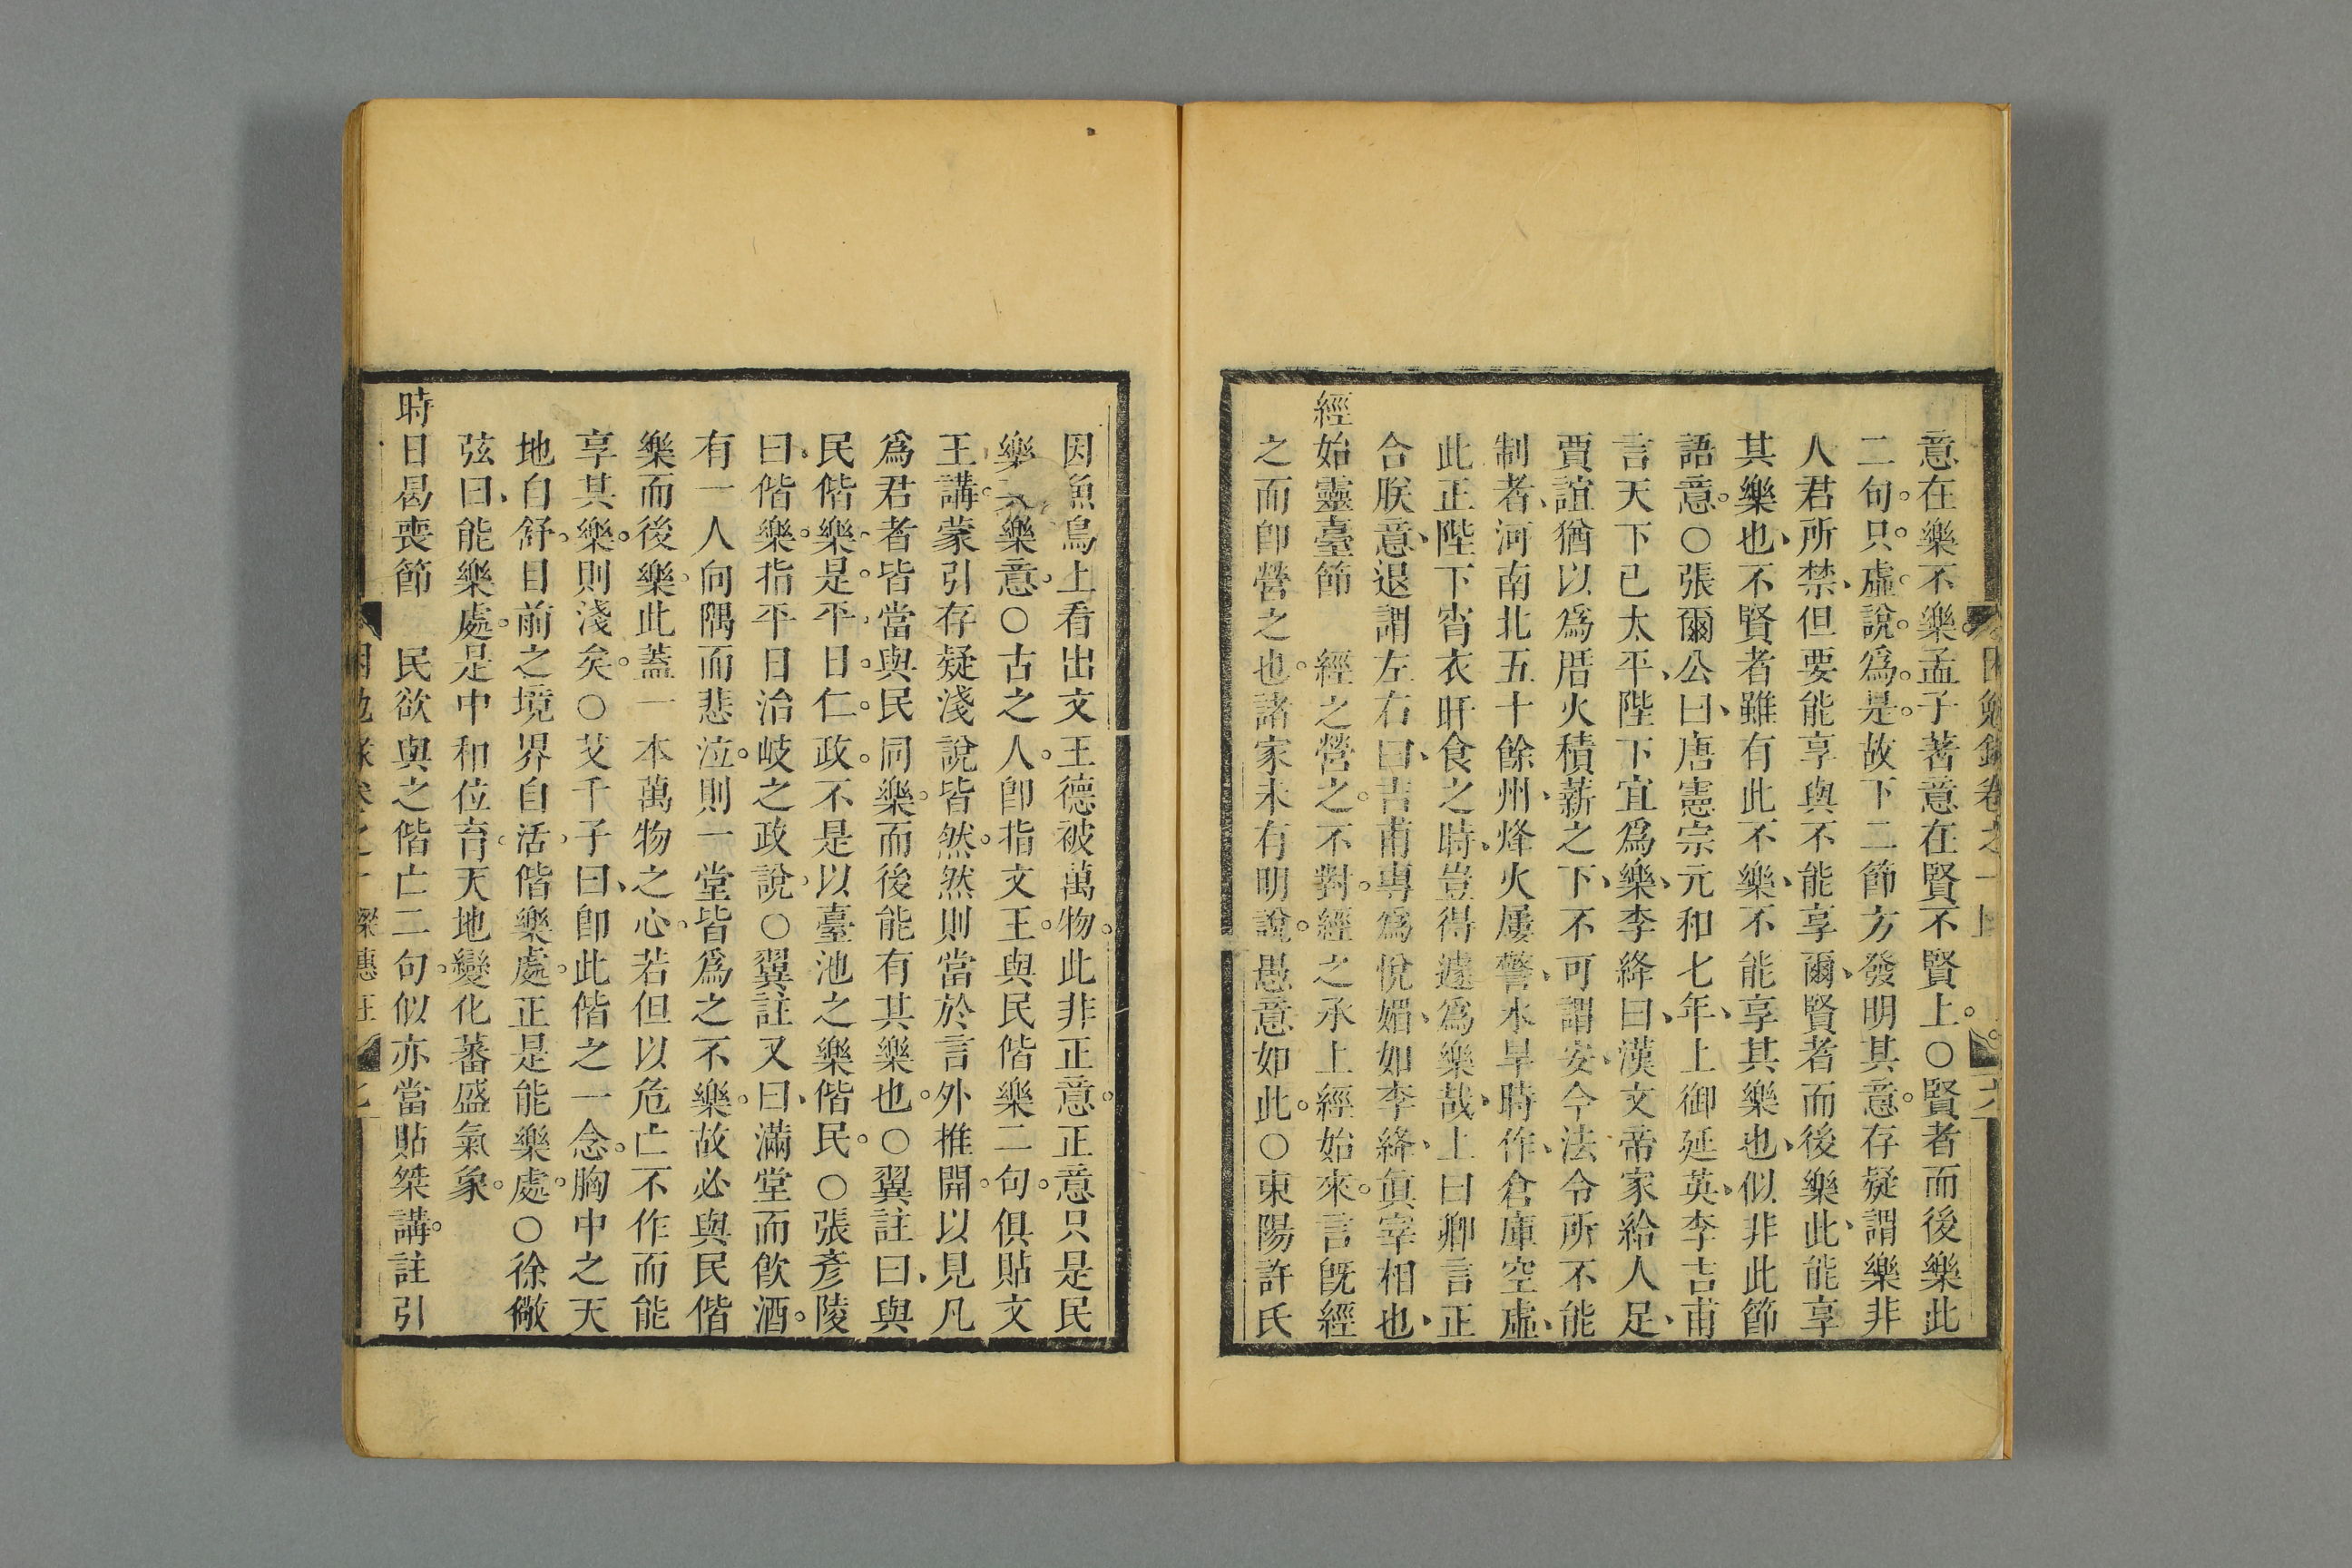 意在樂不樂孟子著意在賢不賢上○賢者而後樂此
二句只虛說爲是故下二節方發明其意存疑謂樂非
人君所禁但要能享與不能享爾賢者而後樂此能享
其樂也不賢者雖有此不樂不能享其樂也似非此節
語意○張爾公曰唐憲宗元和七年上御延英李吉甫
言天下已太平陛下宜爲樂李絳曰漢文帝家給人足
賈誼猶以爲厝火積薪之下不可謂安今法令所不能
制者河南北五十餘州烽火屢警水旱時作倉庫空虛
此正陛下宵衣旰食之時豈得遽爲樂哉上曰卿言正
合朕意退謂左右曰吉甫專爲悅媚如李絳眞宰相也
經始靈臺節　經之營之不對經之承上經始來言旣經
之而卽營之也諸家未有明說愚意如此○東陽許氏
因魚鳥上看出文王德被萬物此非正意正意只是民
樂文樂意○古之人卽指文王與民偕樂二句俱貼文
王講蒙引存疑淺說皆然然則當於言外推開以見凡
爲君者皆當與民同樂而後能有其樂也○翼註曰與
民偕樂是平日仁政不是以臺池之樂偕民○張彥陵
曰偕樂指平日治岐之政說○翼註又曰滿堂而飮酒
有一人向隅而悲泣則一堂皆爲之不樂故必與民偕
樂而後樂此蓋一本萬物之心若但以危亡不作而能
享其樂則淺矣○艾千子曰卽此偕之一念胸中之天
地自舒目前之境界自活偕樂處正是能樂處○徐儆
弦曰能樂處是中和位育天地變化蕃盛氣象
時日曷喪節　民欲與之偕亡二句似亦當貼桀講註引